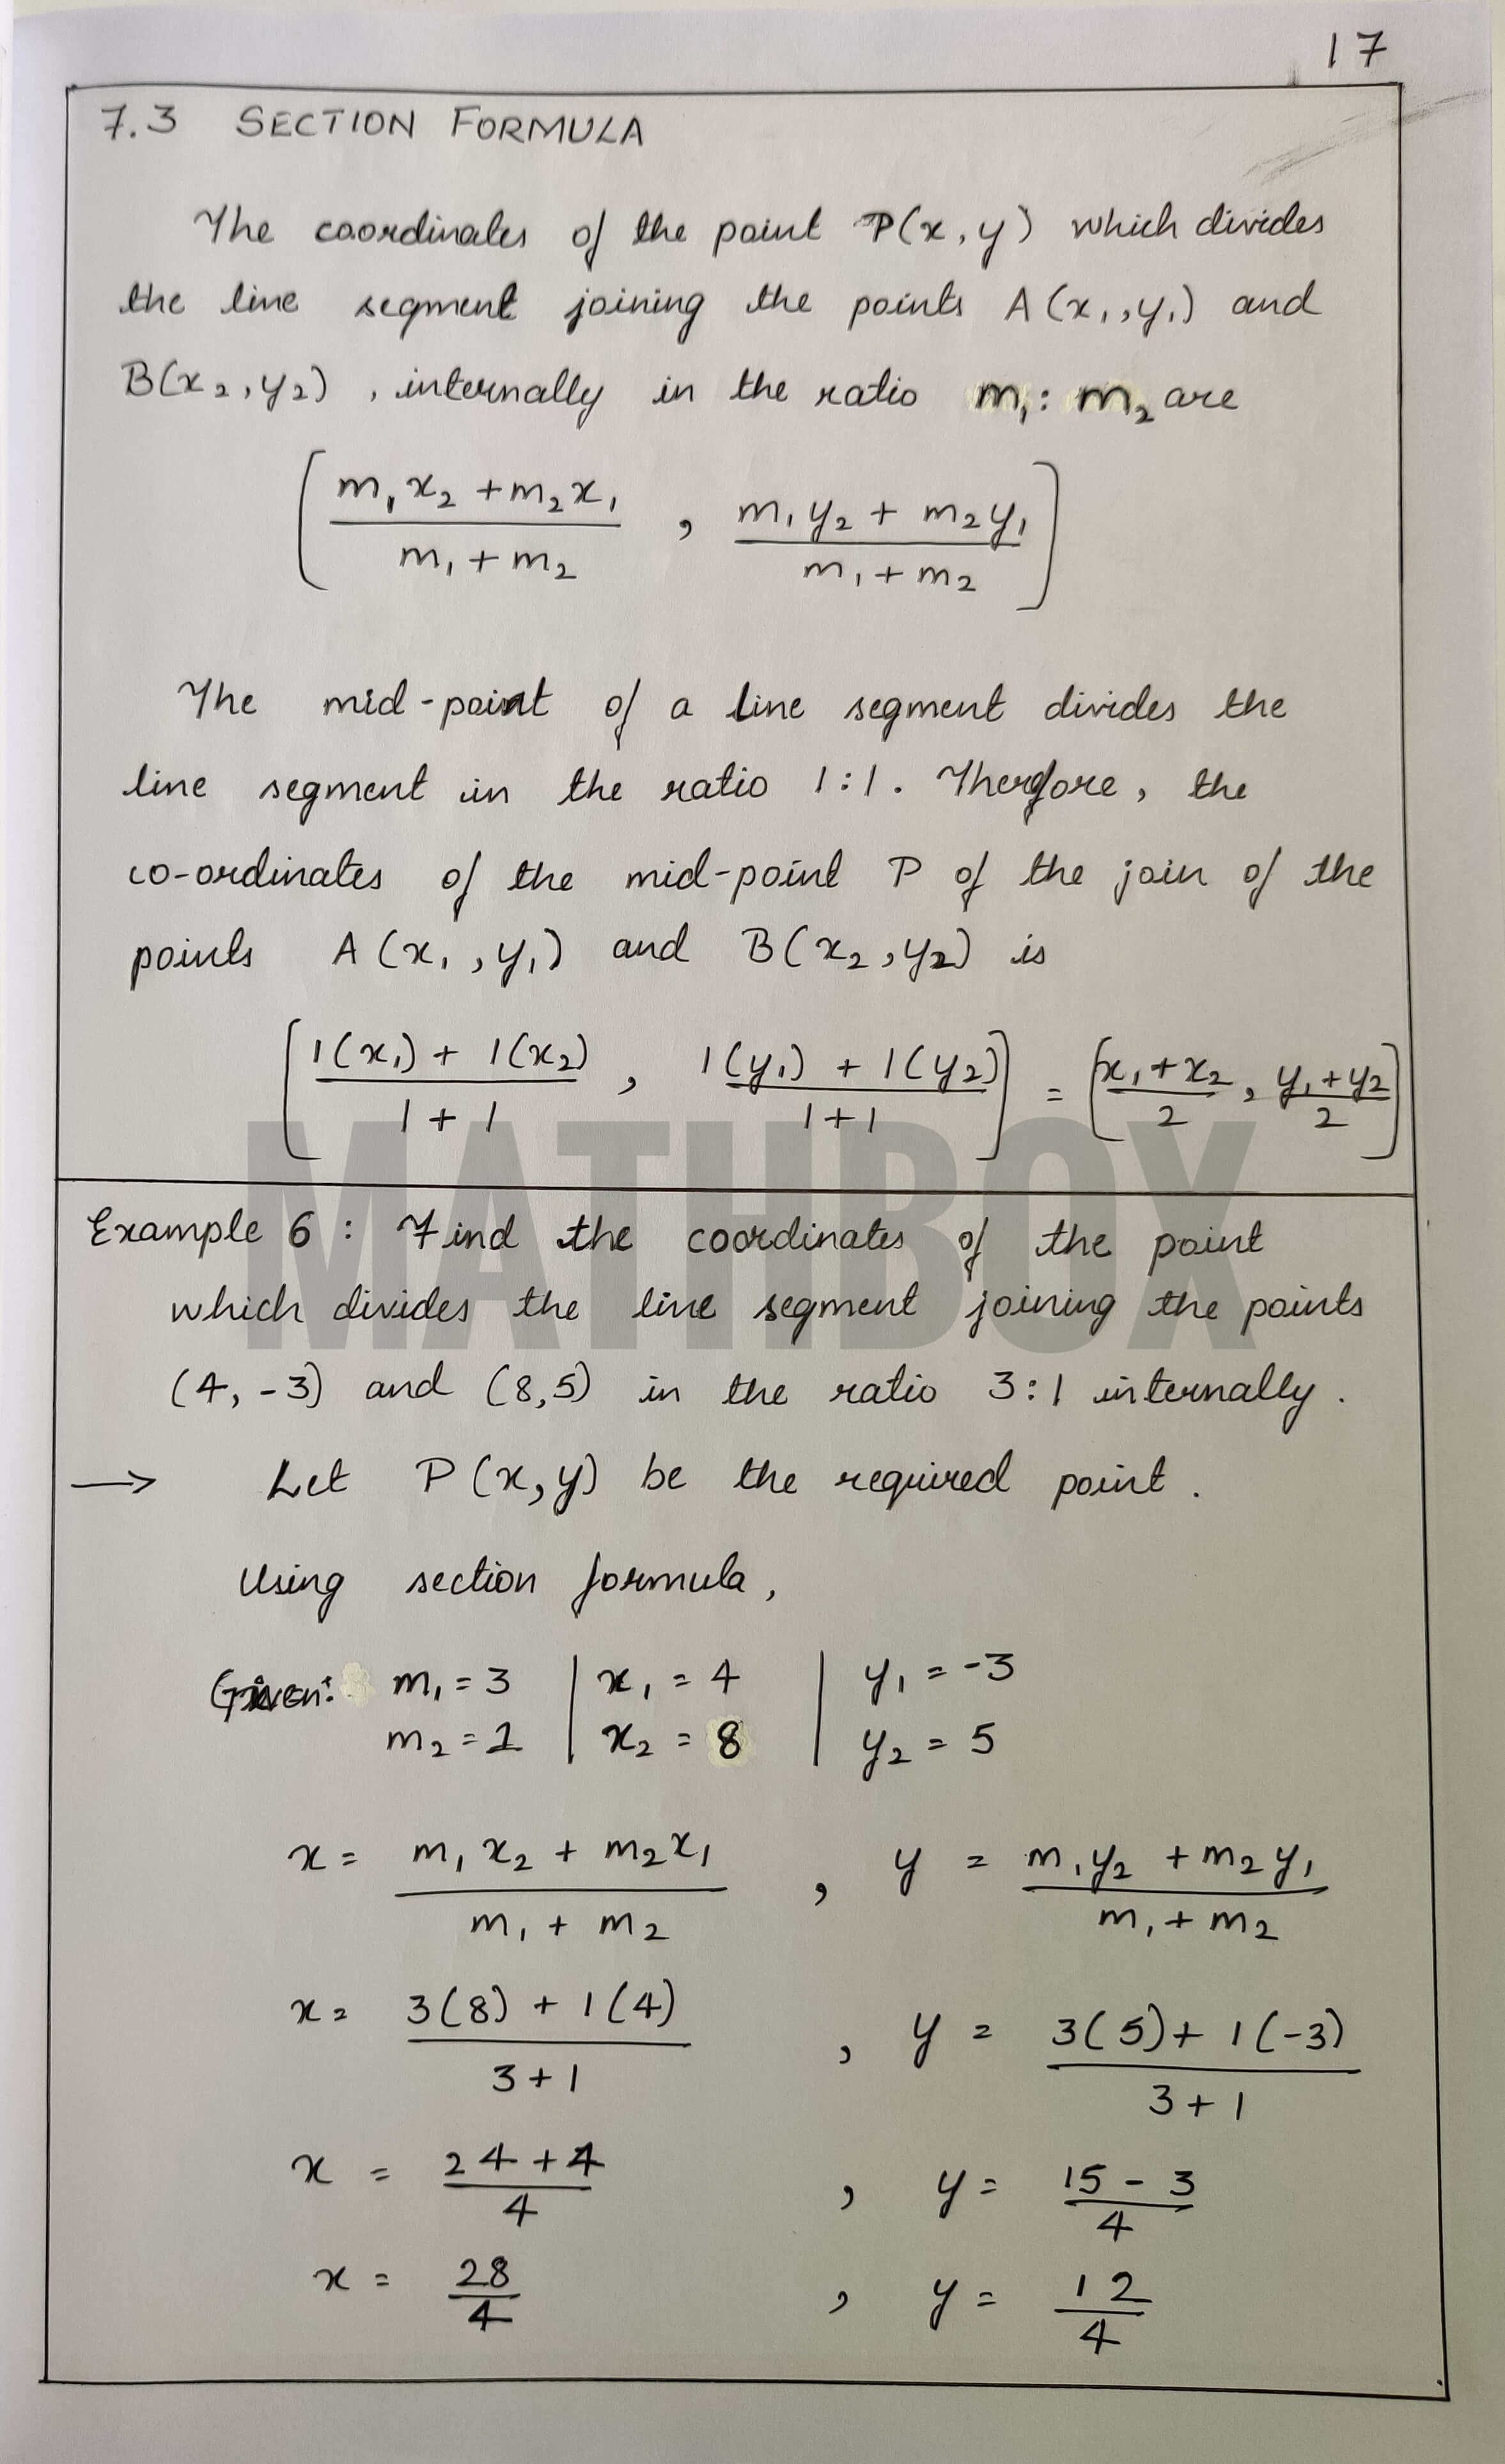 17
7.3 SECTION FORMULA
The coordinates of the point P(x, y) which divides
the line segment joining the points A(x₁, y₁) and
B(x₂, y₂), internally in the ratio m₁ : m₂ are
[ (m₁x₂ + m₂x₁)/(m₁ + m₂) , (m₁y₂ + m₂y₁)/(m₁ + m₂) ]
The mid-point of a line segment divides the
line segment in the ratio 1:1. Therefore, the
co-ordinates of the mid-point P of the join of the
points A(x₁, y₁) and B(x₂, y₂) is
[ (1(x₁) + 1(x₂))/(1+1) , (1(y₁) + 1(y₂))/(1+1) ] = [ (x₁+x₂)/2 , (y₁+y₂)/2 ]
MATHBOX
Example 6 : Find the coordinates of the point
which divides the line segment joining the points
(4, -3) and (8,5) in the ratio 3:1 internally.
→ Let P(x, y) be the required point.
Using section formula,
Given: m₁ = 3 | x₁ = 4 | y₁ = -3
m₂ = 1 | x₂ = 8 | y₂ = 5
x = (m₁x₂ + m₂x₁)/(m₁ + m₂) , y = (m₁y₂ + m₂y₁)/(m₁ + m₂)
x = (3(8) + 1(4))/(3+1) , y = (3(5) + 1(-3))/(3+1)
x = (24+4)/4 , y = (15-3)/4
x = 28/4 , y = 12/4